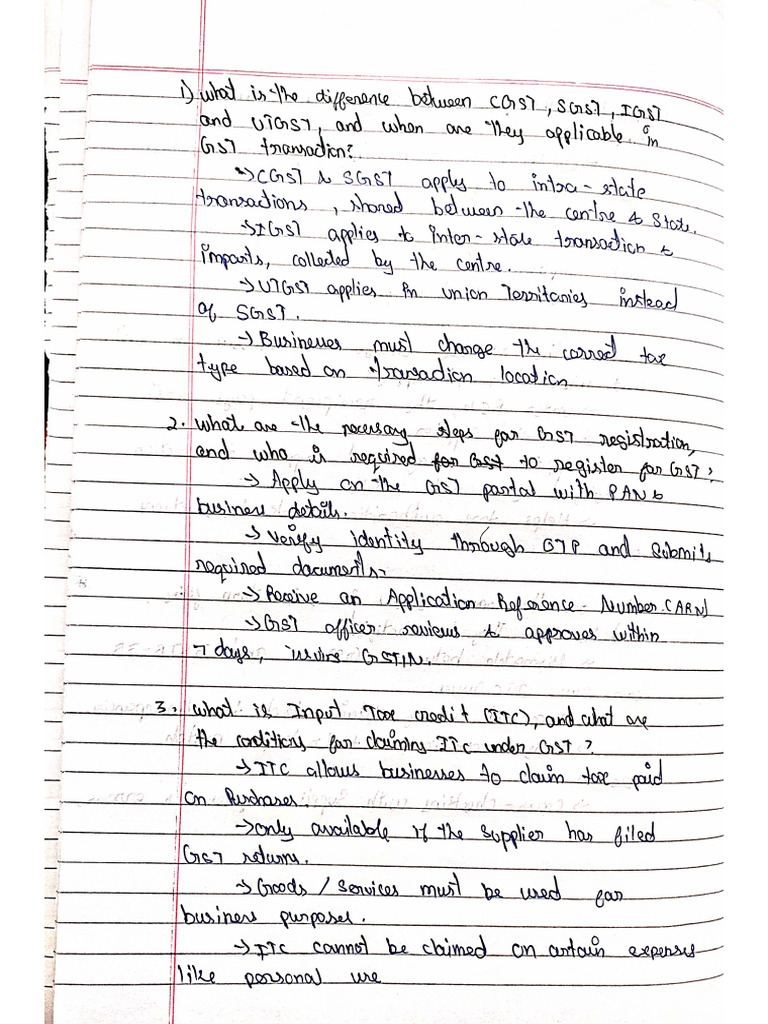 1) What is the difference between CGST, SGST, IGST
and UTGST, and when are they applicable in
GST transaction?
→ CGST & SGST apply to intra-state
transactions, shared between the centre & State.
→ IGST applies to inter-state transaction &
imports, collected by the centre.
→ UTGST applies in union Territories instead
of SGST.
→ Businesses must change the correct tax
type based on transaction location
2. What are the necessary steps for GST registration,
and who is required for GST to register for GST?
→ Apply on the GST portal with PAN &
business details.
→ Verify identity through OTP and submits
required documents.
→ Receive an Application Reference Number (ARN)
→ GST officer reviews & approves within
7 days, issuing GSTIN.
3. What is Input Tax credit (ITC), and what are
the conditions for claiming ITC under GST?
→ ITC allows businesses to claim tax paid
on Purchases.
→ only available if the supplier has filed
GST returns.
→ Goods / Services must be used for
business purposes.
→ ITC cannot be claimed on certain expenses
like personal use